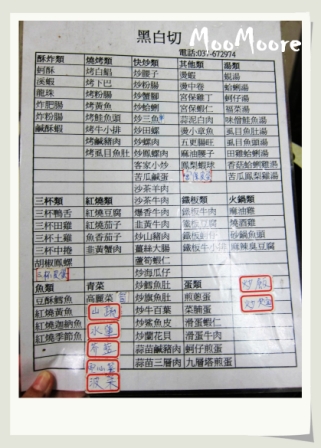 MooMoore
黑白切
電話:03-672974
酥炸類 燒烤類 快炒類 其他類 湯類
蚵酥 烤白鯧 炒腰子 燙蝦 蜆湯
溪蝦 烤下巴 炒粉腸 燙中卷 蛤蜊湯
龍珠 烤粉腸 炒蟹腳 宮保雞丁 蚵仔湯
炸肥腸 烤魚黃 炒蛤蜊 宮保蝦仁 福菜湯
炸粉腸 烤鮭魚頭 炒三魚 蒜泥白肉 味噌鮭魚湯
鹹酥蝦 烤牛小排 炒田螺 燙小章魚 虱目魚肚湯
烤鹹豬肉 炒螺肉 五更腸旺 虱目魚頭湯
烤虱目魚肚 炒鳳螺肉 麻油腰子 田雞蛤蜊湯
客家小炒 鳳梨蝦球 香菇蛤蜊雞湯
苦瓜鹹蛋 苦瓜鳳梨雞湯
沙茶羊肉
三杯類 紅燒類 沙茶牛肉 鐵板類 火鍋類
三杯鴨舌 紅燒豆腐 爆香牛肉 鐵板牛肉 麻油雞
三杯田雞 紅燒茄子 韭黃牛肉 鐵板豆腐 燒酒雞
三杯土雞 魚香茄子 炒山豬肉 鐵板蚵仔 砂鍋魚頭
三杯中卷 韭黃蟹肉 薑絲大腸 鐵板牛小排 麻辣臭豆腐
胡椒鳳螺 蘆筍蝦仁
炒海瓜仔
魚類 青菜 炒鱈魚肚 蛋類 炒飯
豆酥鱈魚 高麗菜 炒旗魚肚 煎蔥蛋 炒麵
紅燒黃魚 山蘇 炒牛百葉 菜脯蛋
紅燒迦納魚 水蓮 炒鯊魚皮 滑蛋蝦仁
紅燒季節魚 炒蘭花貝 滑蛋牛肉
蒜苗鹹豬肉 蚵仔煎蛋
菠菜 蒜苗三層肉 九層塔煎蛋